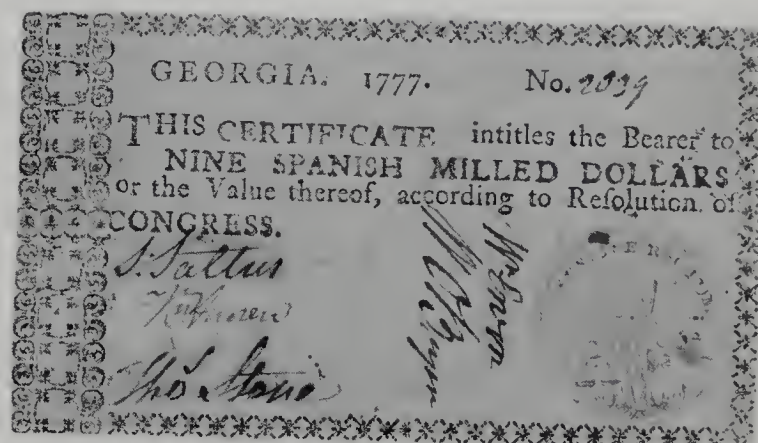 GEORGIA. 1777. No. 2039
THIS CERTIFICATE intitles the Bearer to
NINE SPANISH MILLED DOLLARS
or the Value thereof, according to Reſolution of
CONGRESS.
S. Saltus
Thos Stone
Wm O'Bryen